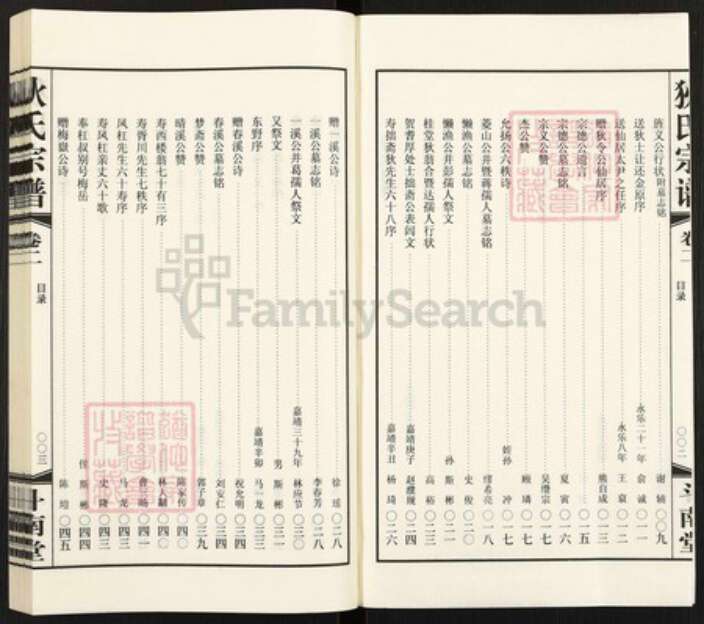 狄氏宗谱
卷二
目录
〇〇二
斗南堂
旌义公行状附墓志铭 谢
送狄士让还金原序 永乐二十一年 俞诚 〇一一
送仙居太尹之任序 永乐八年 王褒 〇一二
赠狄令公仙居序 熊自成 〇一三
宗德公遗言 〇一五
宗德公墓志铭 夏寅 〇一六
宗义公赞 吴继宗 〇一七
杰公赞 顾璘 〇一七
允扬公六秩诗 侄孙 冲 〇一七
菱山公并暨蒋孺人墓志铭 缪希亮 〇一八
懒渔公墓志铭 史俊 〇二〇
懒渔公并彭孺人祭文 孙 斯彬 〇二一
桂堂狄翁合暨达孺人行状 高裕 〇二三
贺耆厚处士拙斋公表闾文 嘉靖庚子 赵 〇二四
寿拙斋狄先生六十八序 嘉靖辛丑 杨琦 〇二六
赠一溪公诗 徐瑶 〇二八
一溪公墓志铭 李春芳 〇二八
一溪公并葛孺人祭文 嘉靖三十九年 林应节 〇三〇
又祭文 男 斯彬 〇三一
东野序 嘉靖辛卯 马一龙 〇三二
赠春溪公诗 祝允明 〇三四
春溪公墓志铭 刘安仁 〇三四
梦斋公赞 郭子章 〇三九
晴溪公赞 陈家传 〇四〇
寿西楼翁七十有三序 林人 〇四〇
寿胥川先生七秩序 〇四一
风杠先生六十寿序 马一龙 〇四三
寿风杠亲丈六十歌 史际 〇四四
奉杠叔别号梅岳 侄 斯彬 〇四四
赠梅嶽公诗 陈 〇四五
狄氏宗谱
卷二
目录
〇〇三
斗南堂
FamilySearch